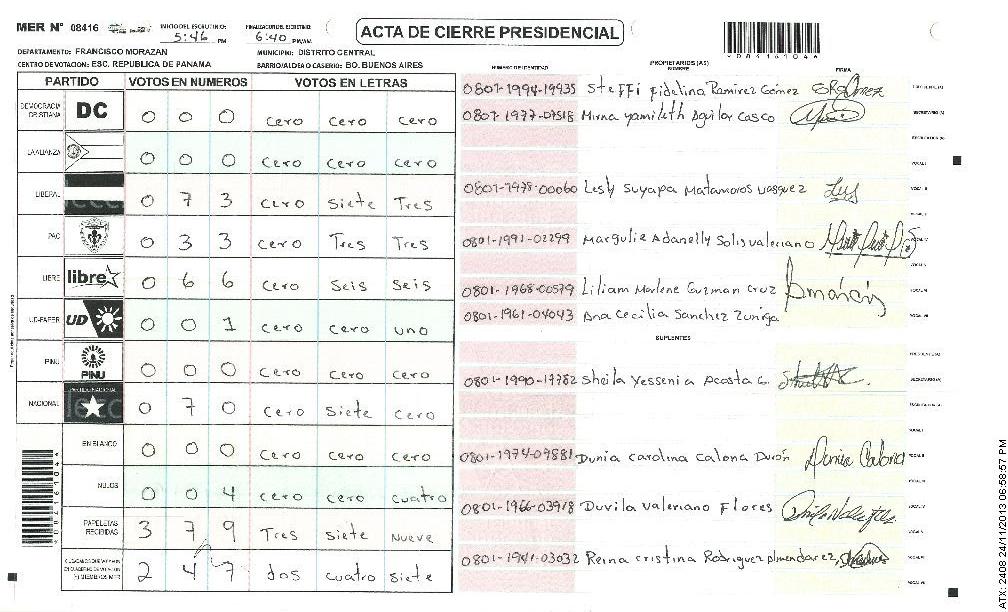 MER N° 08416 INICIO DEL ESCRUTINIO: 5:46 PM FINALIZACION DEL ESCRUTINIO: 6:40 PM/AM ACTA DE CIERRE PRESIDENCIAL
DEPARTAMENTO: FRANCISCO MORAZAN MUNICIPIO: DISTRITO CENTRAL
CENTRO DE VOTACION: ESC. REPUBLICA DE PANAMA BARRIO/ALDEA O CASERIO: BO. BUENOS AIRES
PARTIDO VOTOS EN NUMEROS VOTOS EN LETRAS
DEMOCRACIA CRISTIANA DC 0 0 0 cero cero cero
LA ALIANZA 0 0 0 cero cero cero
LIBERAL 0 7 3 cero siete Tres
PAC 0 3 3 cero Tres Tres
LIBRE libre 0 6 6 cero Seis Seis
UD-FAPER UD 0 0 1 cero cero uno
PINU PINU 0 0 0 cero cero cero
NACIONAL 0 7 0 cero siete cero
EN BLANCO 0 0 0 cero cero cero
NULOS 0 0 4 cero cero cuatro
PAPELETAS RECIBIDAS 3 7 9 Tres siete nueve
2 4 7 dos cuatro siete
NUMERO DE IDENTIDAD PROPIETARIOS (AS) NOMBRE FIRMA
0801-1994-19935 Steffi fidelina Ramirez Gómez
0801-1977-07518 Mirna yamileth Aguilar Casco
0801-1975-00060 Lesly Suyapa Matamoros vasquez
0801-1991-02299 Margulie Adanelly Solis valeriano
0801-1968-00579 Liliam Marlene Guzman Cruz
0801-1961-04043 Ana Cecilia Sanchez Zuniga
SUPLENTES
0801-1990-17782 Sheila Yessenia Acosta G.
0801-1974-09881 Dunia carolina calona Durón
0801-1966-03918 Duvila valeriano Flores
0801-1941-03032 Reina cristina Rodriguez almendarez
ATX: 2408 24/11/2013 06:58:57 PM